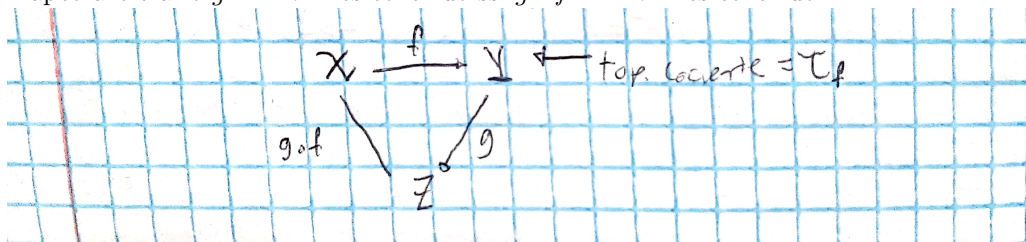 f
X Y top. cociente = τf
g∘f g
Z